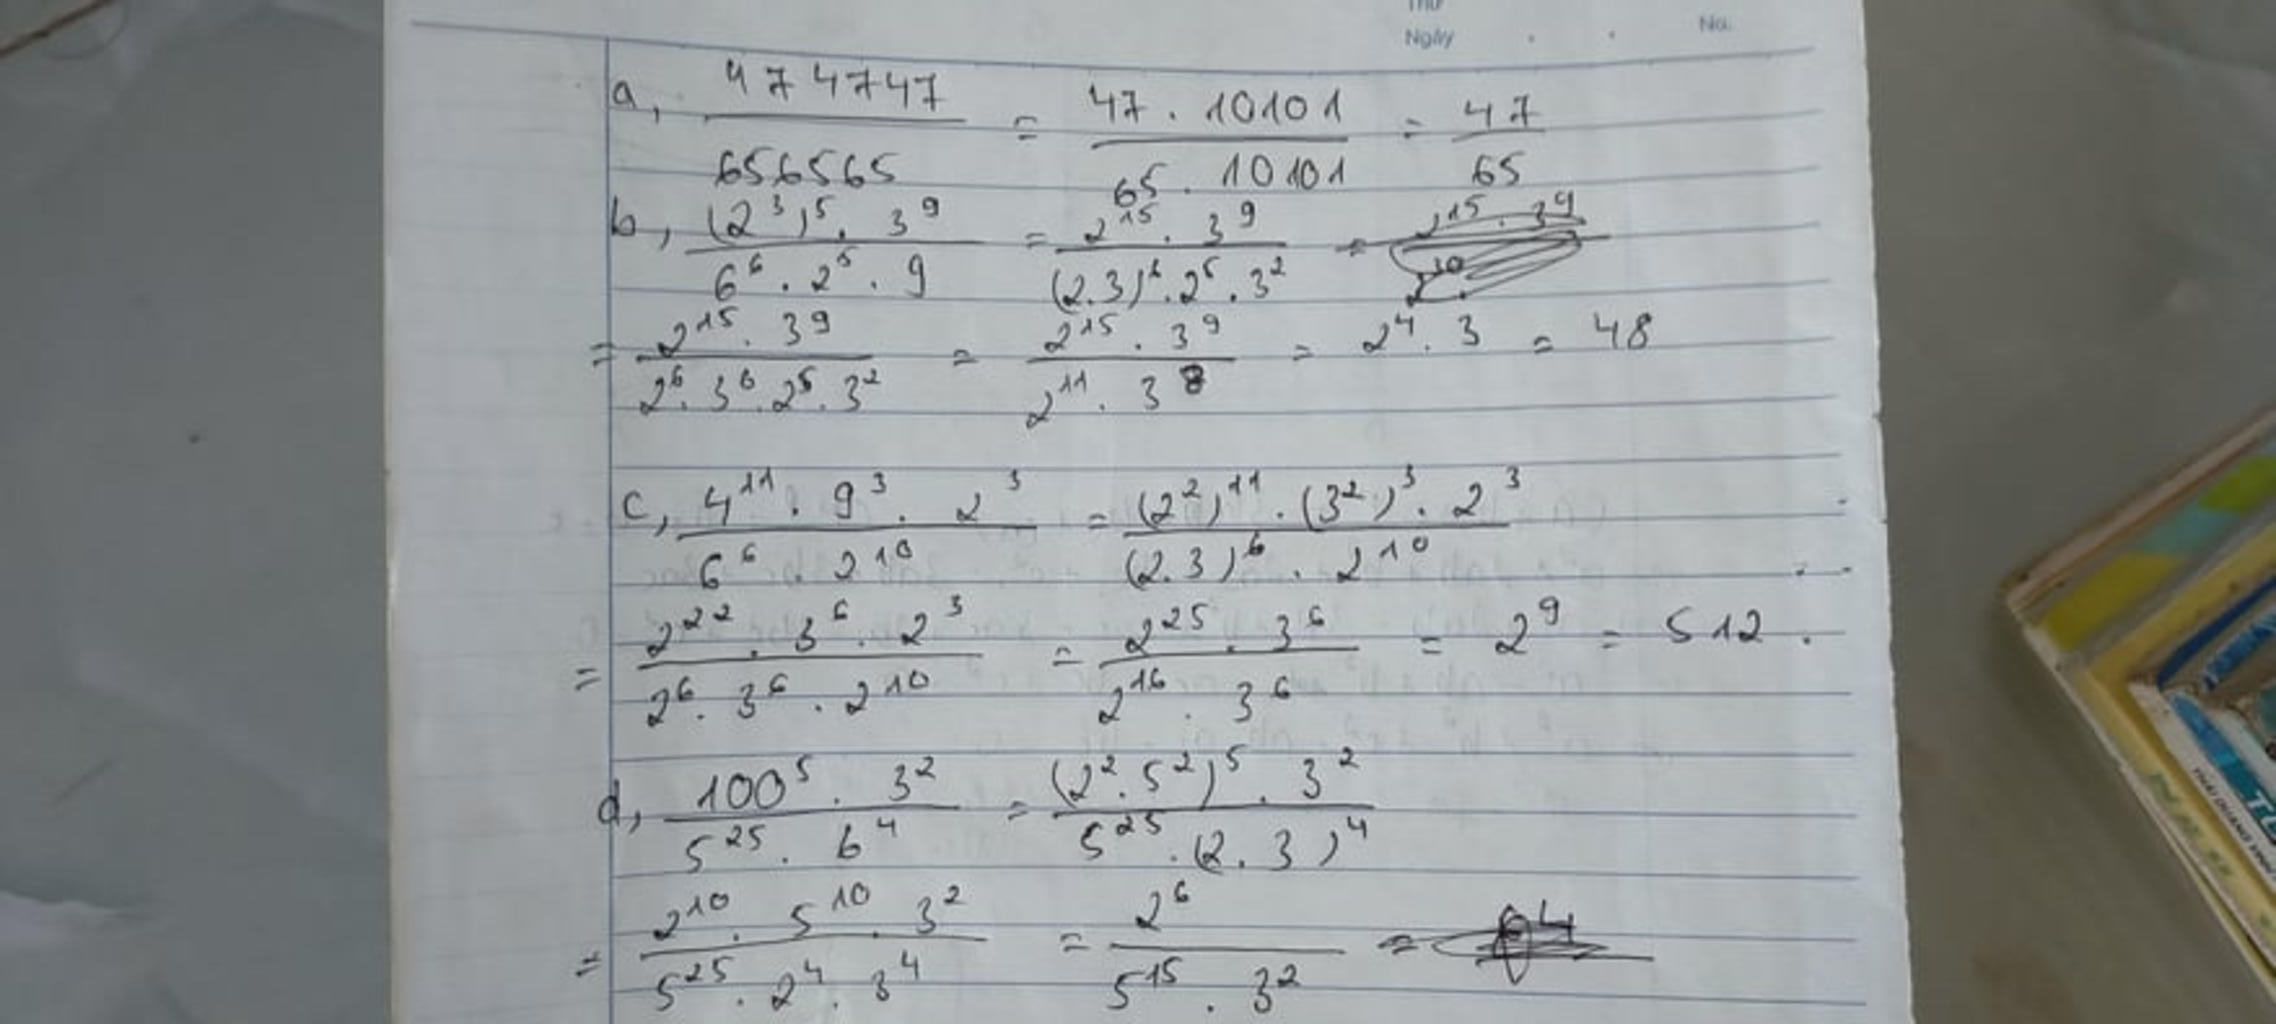 Thứ
Ngày . . No.
a, 474747/656565 = 47 . 10101/65 . 10101 = 47/65
b, (2³)⁵ . 3⁹/6⁶ . 2⁵ . 9 = 2¹⁵ . 3⁹/(2.3)⁶ . 2⁵ . 3²
= 2¹⁵ . 3⁹/2⁶ . 3⁶ . 2⁵ . 3² = 2¹⁵ . 3⁹/2¹¹ . 3⁸ = 2⁴ . 3 = 48
c, 4¹¹ . 9³ . 2³/6⁶ . 2¹⁰ = (2²)¹¹ . (3²)³ . 2³/(2.3)⁶ . 2¹⁰
= 2²² . 3⁶ . 2³/2⁶ . 3⁶ . 2¹⁰ = 2²⁵ . 3⁶/2¹⁶ . 3⁶ = 2⁹ = 512 .
d, 100⁵ . 3²/5²⁵ . 6⁴ = (2² . 5²)⁵ . 3²/5²⁵ . (2 . 3)⁴
= 2¹⁰ . 5¹⁰ . 3²/5²⁵ . 2⁴ . 3⁴ = 2⁶/5¹⁵ . 3²